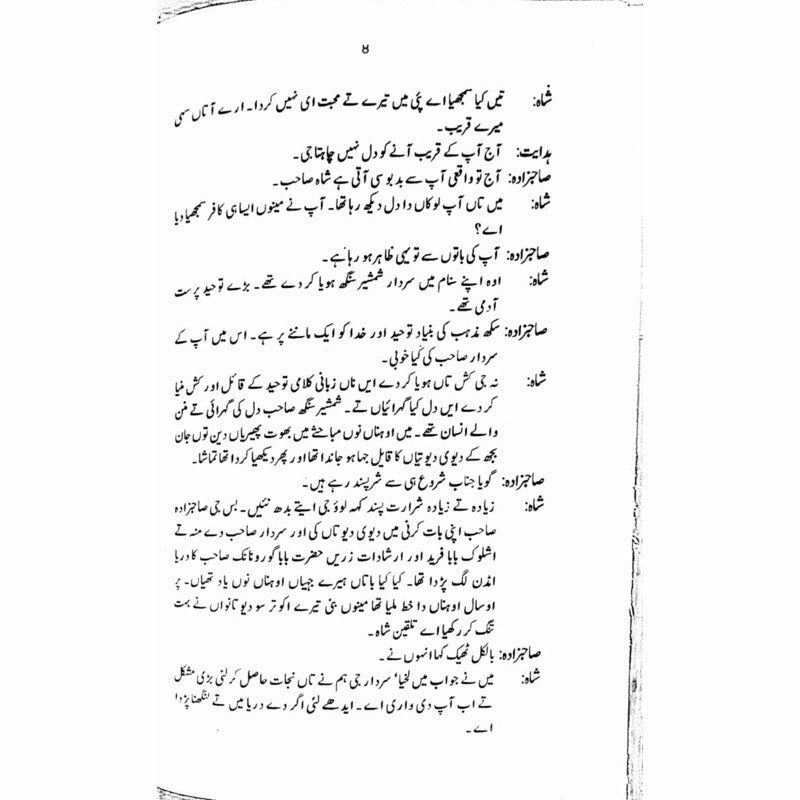 ۸
شاہ: تیں کیا سمجھیا اے پئی میں تیرے تے محبت ای نہیں کردا۔ ارے آ تاں سہی
میرے قریب۔
ہدایت: آج آپ کے قریب آنے کو دل نہیں چاہتا جی۔
صاحبزادہ: آج تو واقعی آپ سے بدبو سی آتی ہے شاہ صاحب۔
شاہ: میں تاں آپ لوکاں دا دل دیکھ رہا تھا۔ آپ نے مینوں ایسا ہی کافر سمجھیا دیا
اے؟
صاحبزادہ: آپ کی باتوں سے تو یہی ظاہر ہو رہا ہے۔
شاہ: اوہ اپنے سنام میں سردار شمشیر سنگھ ہویا کر دے تھے۔ بڑے توحید پرست
آدمی تھے۔
صاحبزادہ: سکھ مذہب کی بنیاد توحید اور خدا کو ایک ماننے پر ہے۔ اس میں آپ کے
سردار صاحب کی کیا خوبی۔
شاہ: نہ جی کش تاں ہویا کر دے ایں ناں زبانی کلامی توحید کے قائل اور کش منیا
کر دے ایں دل کیا گہرائیاں تے۔ شمشیر سنگھ صاحب دل کی گہرائی تے منن
والے انسان تھے۔ میں اوہناں نوں مباحثے میں بھوت پھیریاں دین توں جان
بجھ کے دیوی دیوتیاں کا قایل جہا ہو جاندا تھا اور پھر دیکھیا کردا تھا تماشا۔
صاحبزادہ: گویا جناب شروع ہی سے شر پسند رہے ہیں۔
شاہ: زیادہ تے زیادہ شرارت پسند کہہ لوؤ جی ایتے بدھ نئیں۔ بس جی صاحبزادہ
صاحب اپنی بات کرنی میں دیوی دیوتاں کی اور سردار صاحب دے منہ تے
اشلوک بابا فرید اور ارشادات زریں حضرت بابا گورو نانک صاحب کا دریا
امڈن لگ پڑدا تھا۔ کیا کیا باتاں ہیرے جہیاں اوہناں نوں یاد تھیاں۔ پر
اوسال اوہناں دا خط ملیا تھا مینوں بنی تیرے اکو تر سو دیوتانواں نے بہت
تنگ کر رکھیا اے تلقین شاہ۔
صاحبزادہ: بالکل ٹھیک کہا انہوں نے۔
شاہ: میں نے جواب میں لکھیا، سردار جی ہم نے تاں نجات حاصل کر لئی بڑی مشکل
تے اب آپ دی واری اے۔ ایدھے لئی اگر دے دریا میں تے لنگھنا پڑدا
اے۔